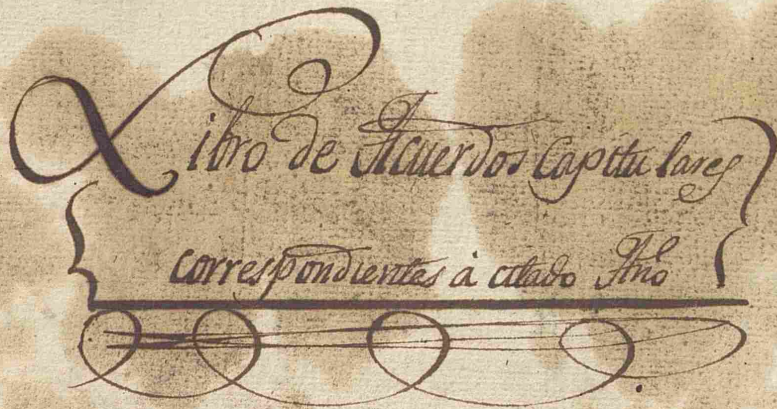 Libro de Acuerdos Capitulares
correspondientes à citado Año